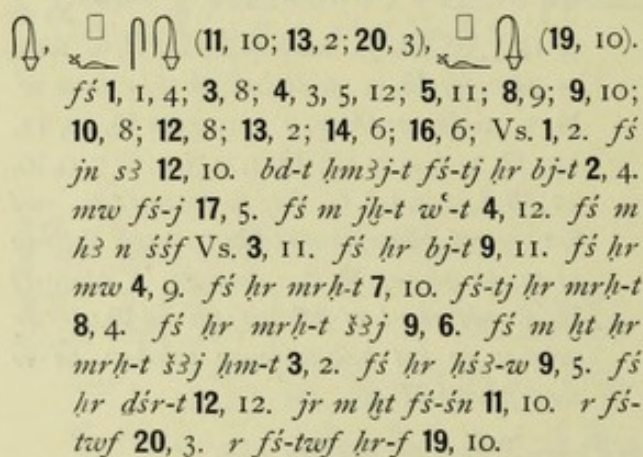 𓄊, 𓊪𓆑𓋴𓄊 (11, 10; 13, 2; 20, 3), 𓊪𓆑𓄊 (19, 10).
fś 1, 1, 4; 3, 8; 4, 3, 5, 12; 5, 11; 8, 9; 9, 10;
10, 8; 12, 8; 13, 2; 14, 6; 16, 6; Vs. 1, 2. fś
jn sꜣ 12, 10. bd-t ḥmꜣj-t fś-tj ḥr bj-t 2, 4.
mw fś-j 17, 5. fś m jḫ-t wꜥ-t 4, 12. fś m
hꜣ n śśf Vs. 3, 11. fś ḥr bj-t 9, 11. fś ḥr
mw 4, 9. fś ḥr mrḥ-t 7, 10. fś-tj ḥr mrḥ-t
8, 4. fś ḥr mrḥ-t šꜣj 9, 6. fś m ḫt ḥr
mrḥ-t šꜣj ḥm-t 3, 2. fś ḥr ḥśꜣ-w 9, 5. fś
ḥr dśr-t 12, 12. jr m ḫt fś-śn 11, 10. r fś-
twf 20, 3. r fś-twf ḥr-f 19, 10.